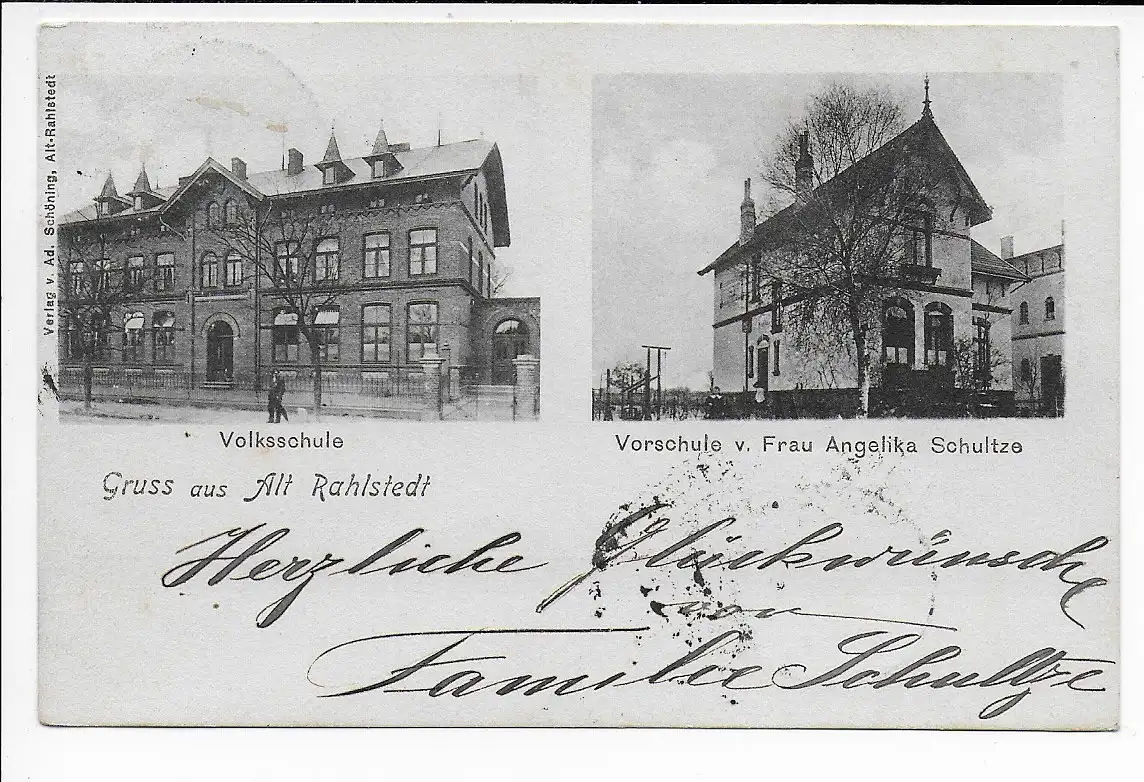 Verlag v. Ad. Schöning, Alt-Rahlstedt
Volksschule
Vorschule v. Frau Angelika Schultze
Gruss aus Alt Rahlstedt
Herzliche Glückwünsche
von
Familie Schultze